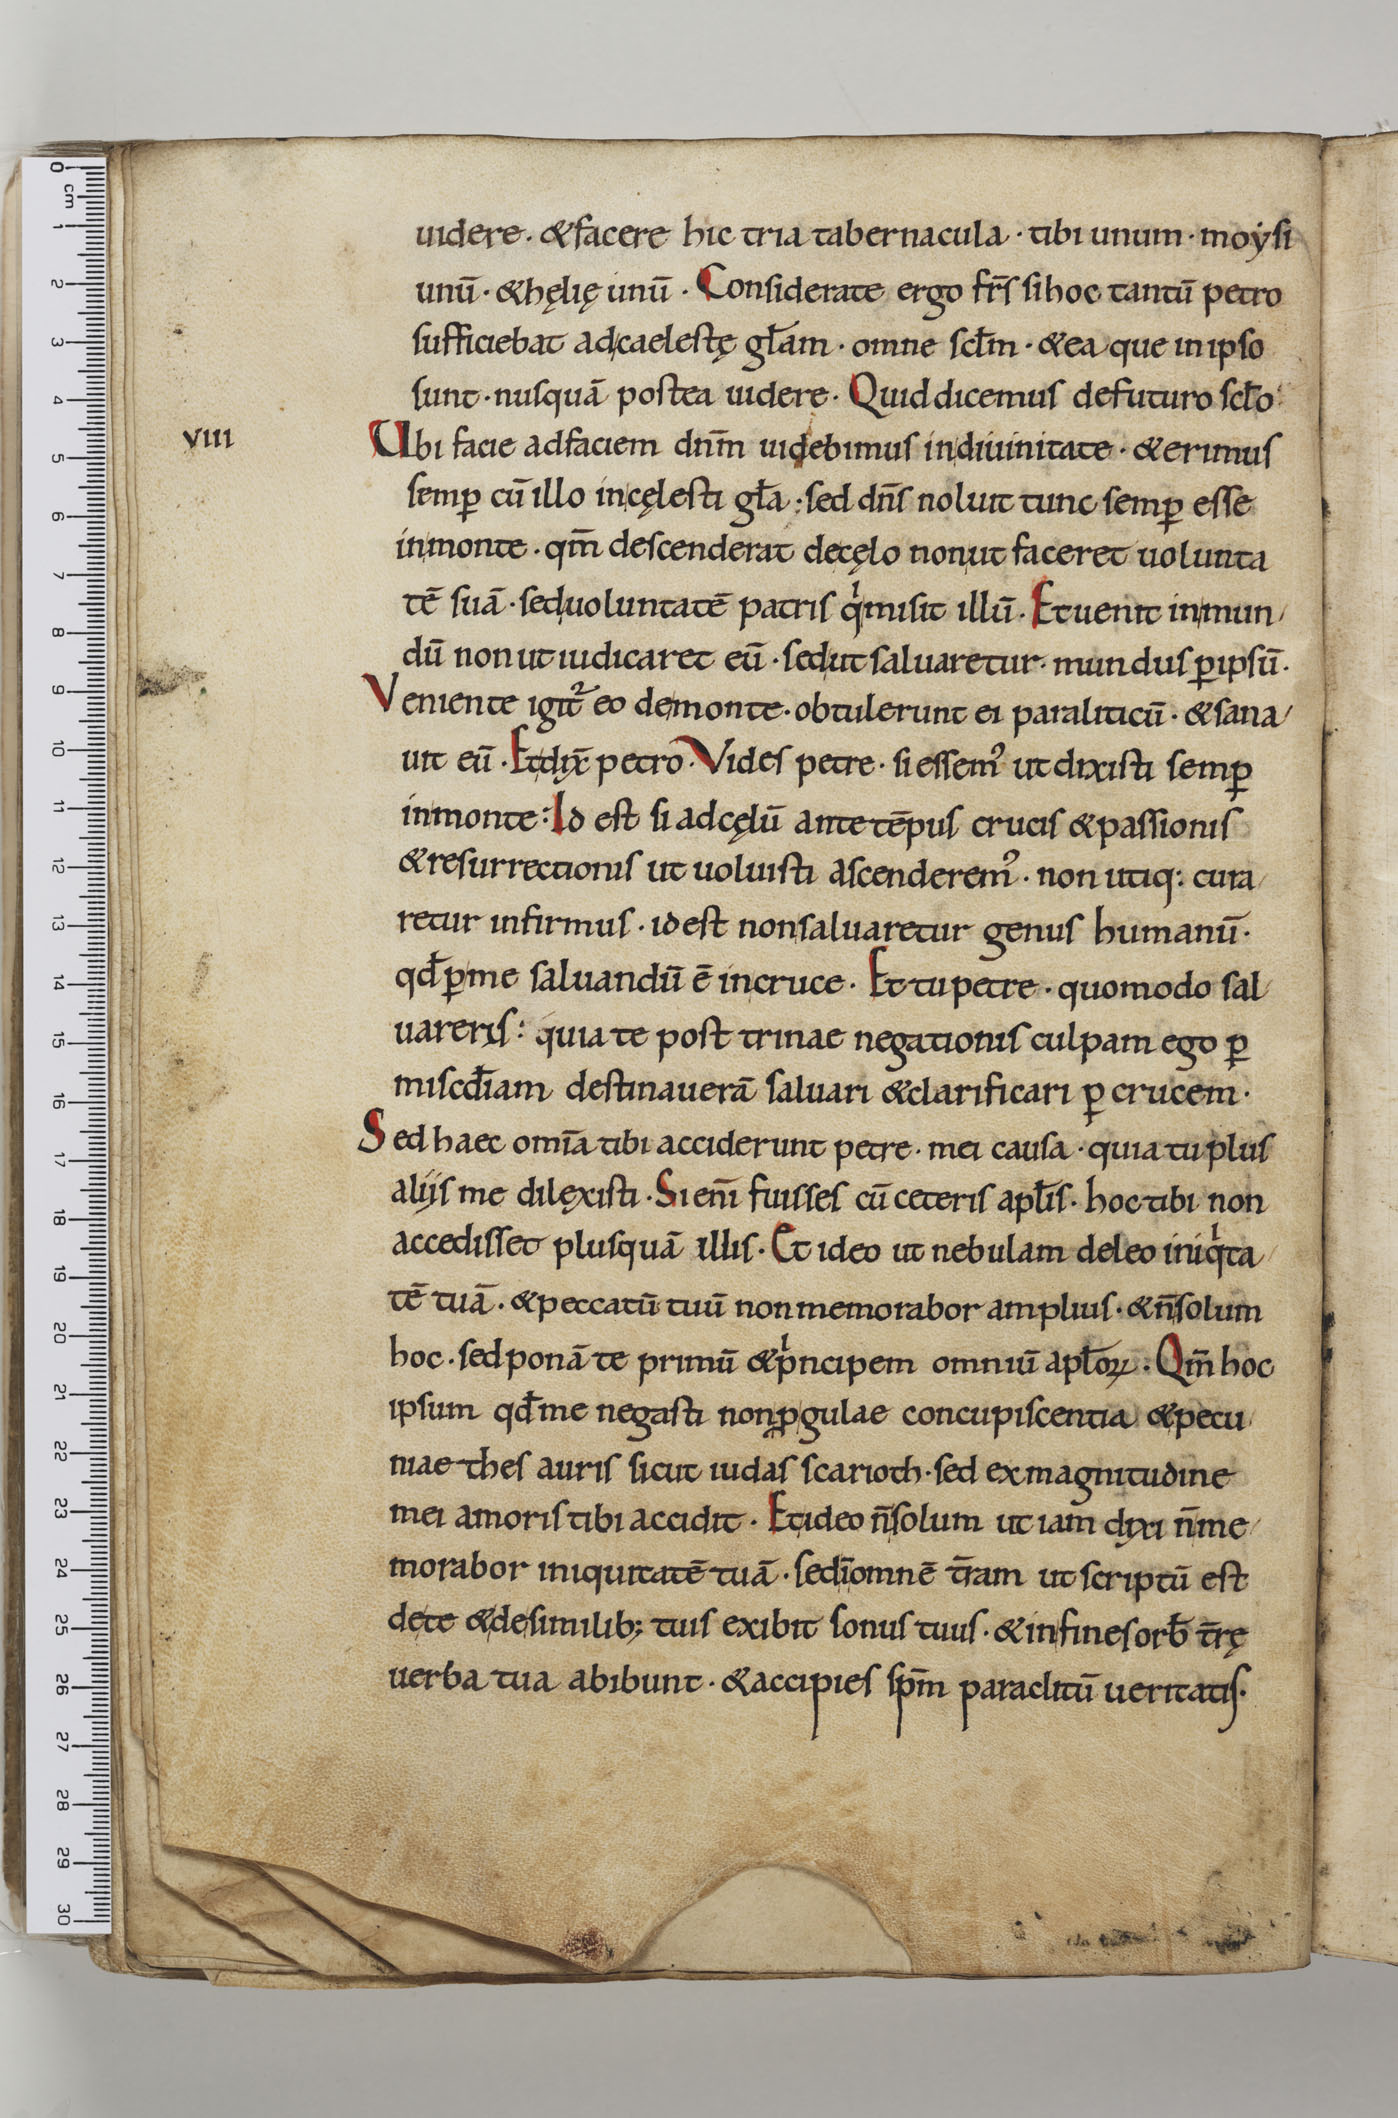 uidere · & facere hic tria tabernacula · tibi unum · moẏsi
unū · & hęlię unū · Considerate ergo fr̄s si hoc tantū petro
sufficiebat ad caelestę gl̄am · omne scl̄m · & ea que in ipso
sunt · nusquā postea uidere · Quid dicemus de futuro scl̄o
VIII
Ubi facie ad faciem dn̄m uidebimus in diuinitate · & erimus
semꝑ cū illo in cęlesti gl̄a : sed dn̄s noluit tunc semꝑ esse
in monte · qm̄ descenderat de cęlo non ut faceret uolunta
tē suā · sed uoluntatē patris qͥ misit illū · Et uenit in mun
dū non ut iudicaret eū · sed ut saluaretur · mundus ꝑ ipsū ·
Veniente igit᷑ eo de monte · obtulerunt ei paraliticū · & sana
uit eū · Et dix̄ petro · Vides petre · si essemꝰ ut dixisti semꝑ
in monte : Id est si ad cęlū ante tēpus crucis & passionis
& resurrectionis ut uoluisti ascenderemꝰ · non utiq: cura
retur infirmus · id est non saluaretur genus humanū ·
qd̄ ꝑ me saluandū ē in cruce · Et tu petre · quomodo sal
uareris : quia te post trinae negationis culpam ego ꝑ
miscd̄iam destinauerā saluari & clarificari ꝑ crucem ·
Sed haec omīa tibi acciderunt petre · mei causa · quia tu plus
alijs me dilęxisti · Si enī fuisses cū ceteris apl̄is · hoc tibi non
accedisset plusquā illis · Et ideo ut nebulam deleo iniqͥta
tē tuā · & peccatū tuū non memorabor amplius · & n̄ solum
hoc · sed ponā te primū & pͥncipem omniū apl̄oꝝ · Qm̄ hoc
ipsum qd̄ me negasti non ꝓ gulae concupiscentia & pecu
niae thes auris sicut iudas scarioth · sed ex magnitudine
mei amoris tibi accidit · Et ideo n̄ solum ut iam dixi n̄ me
morabor iniquitatē tuā · sed ī omnē tr̄am ut scriptū est
de te & de similib; tuis exibit sonus tuus · & in fines orb̄ tr̄ę
uerba tua abibunt · & accipies sp̄m paraclitū ueritatis ·
0 cm 1 2 3 4 5 6 7 8 9 10 11 12 13 14 15 16 17 18 19 20 21 22 23 24 25 26 27 28 29 30